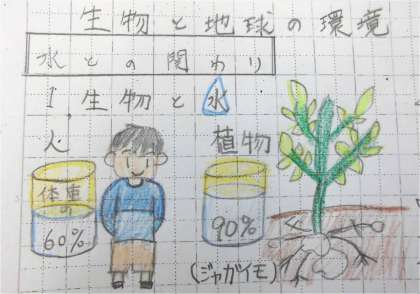 生物と地球の環境
水との関わり
1,生物と水
人
植物
体重の
60%
90%
(ジャガイモ)